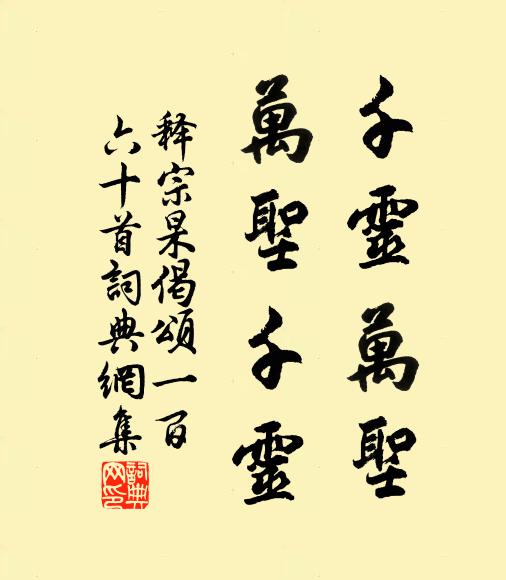 千靈萬聖
萬聖千靈
释宗杲偈頌一百
六十首詞典網集
詞典
网印